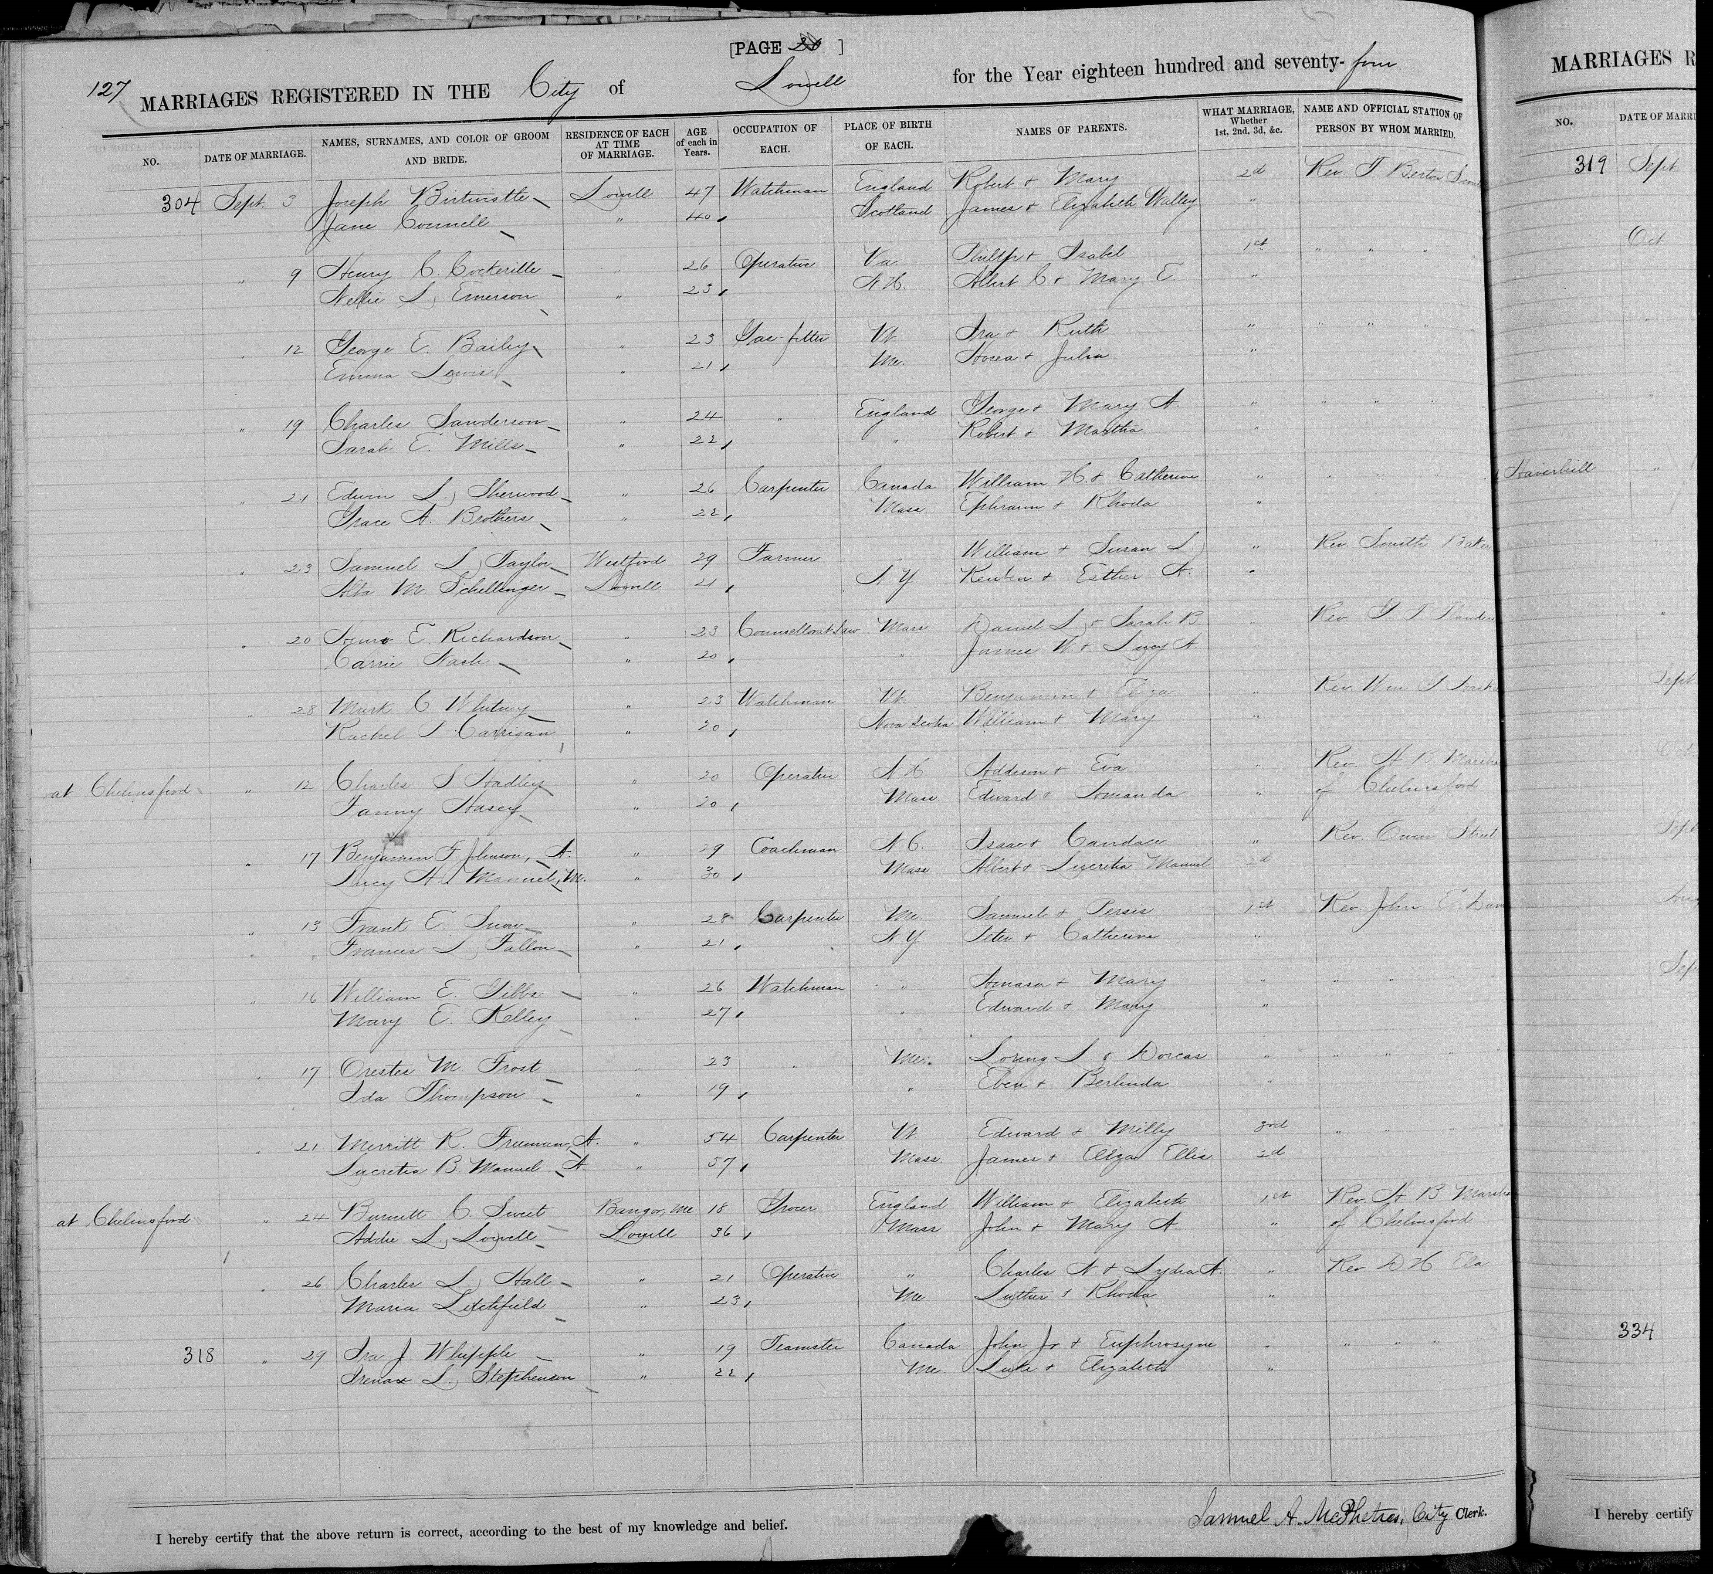 [PAGE 20 ]
127 MARRIAGES REGISTERED IN THE City of Lowell for the Year eighteen hundred and seventy-four
NO. DATE OF MARRIAGE. NAMES, SURNAMES, AND COLOR OF GROOM AND BRIDE. RESIDENCE OF EACH AT TIME OF MARRIAGE. AGE of each in Years. OCCUPATION OF EACH. PLACE OF BIRTH OF EACH. NAMES OF PARENTS. WHAT MARRIAGE, Whether 1st, 2nd, 3d, &c. NAME AND OFFICIAL STATION OF PERSON BY WHOM MARRIED.
304 Sept 3 Joseph Birtwistle Lowell 47 Watchman England Robert & Mary 2d Rev T Berton
Jane Connell " 40 Scotland James & Elizabeth Walley "
" 9 Henry C. Cockerille " 26 Operative Va Philip & Isabel 1st " " "
Nellie L Emerson " 23 N.H. Albert C & Mary E "
" 12 George E. Bailey " 23 Gas-fitter Vt Ira & Ruth " " "
Emma Lewis " 21 Me. Hosea & Julia "
" 19 Charles Sanderson " 24 " England George & Mary A " " " "
Sarah E. Mills " 22 " Robert & Martha "
" 21 Edwin L Sherwood " 26 Carpenter Canada William H & Catherine "
Grace A. Brothers " 22 Mass Ephraim & Rhoda "
" 23 Samuel L Taylor Westford 29 Farmer " William & Susan L " Rev Smith Baker
Alta M Schellenger Lowell 21 N.Y. Reuben & Esther A. "
" 20 E. Richardson " 23 Counsellor at Law Mass Daniel S & Sarah B " Rev
Carrie Nash " 20 " James W & Lucy A
" 28 Mark C Whitney " 23 Watchman Vt Benjamin & Eliza " Rev Wm
Rachel S Carrigan " 20 Nova Scotia William & Mary "
at Chelmsford " 12 Charles S Hadley " 20 Operative N H Addison & Eva " Rev. H B
Fanny Hasey " 20 Mass Edward & Amanda " of Chelmsford
" 17 Benjamin F Johnson, A. " 29 Coachman N.C. Isaac & Candace " Rev. Owen Street
Lucy A Manuel, M. " 30 Mass Albert & Lucretia Manuel
" 13 Frank E. Snow " 28 Carpenter Me Samuel & Persis 1st Rev John E
" " Frances L Fallon " 21 N.Y Peter & Catherine "
" 16 William E. Gibbs " 26 Watchman " Amasa & Mary " " "
Mary E. Kelley " 27 " Edward & Mary "
" 17 Orestes M. Frost " 23 " Me. Loring L & Dorcas " " " "
Ida Thompson " 19 " Eben & Berlinda "
" 21 Merritt R. Freeman, A. " 54 Carpenter Vt Edward & Milly 3rd " "
Lucretia B Manuel A " 57 Mass James & Eliza Ellis 2d
at Chelmsford " 24 Burnett C. Sweet Bangor, Me 18 Grocer England William & Elizabeth 1st Rev. H B
Addie L Lowell Lowell 36 Mass John & Mary A " of Chelmsford
" 26 Charles L Hall " 21 Operative " Charles A & Lydia A. " Rev D H Ela
Maria Litchfield " 23 Me Luther & Rhoda "
318 " 29 Ira J Whipple " 19 Teamster Canada John Jr & Euphrosyne " " " "
L. Stephenson " 22 Me Luke & Elizabeth "
I hereby certify that the above return is correct, according to the best of my knowledge and belief.
Samuel A. McPhetres, City Clerk.
MARRIAGES R
NO. DATE OF MARRI
319 Sept
Oct
Haverhill "
Sept
334
I hereby certify